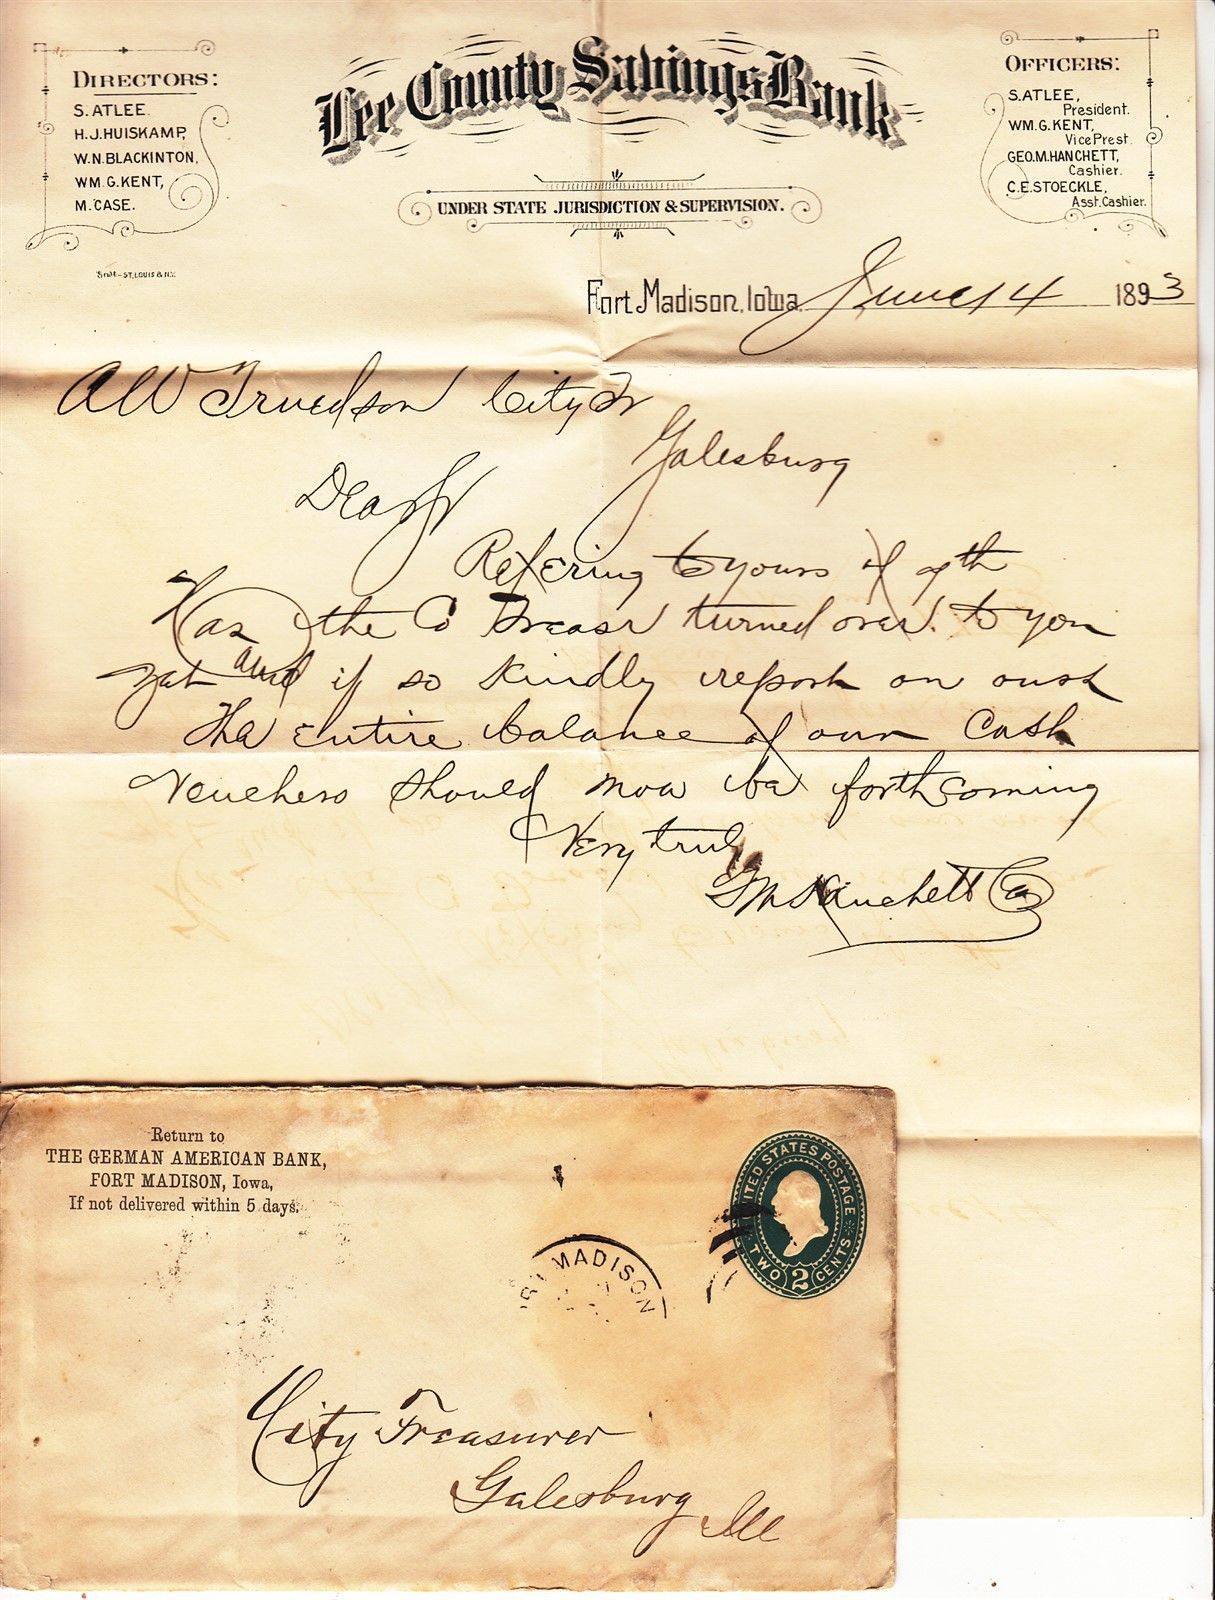 Lee County Savings Bank
UNDER STATE JURISDICTION & SUPERVISION.
DIRECTORS:
S. ATLEE.
H.J. HUISKAMP,
W.N. BLACKINTON,
WM. G. KENT,
M. CASE.
OFFICERS:
S. ATLEE,
President.
WM. G. KENT,
Vice Prest.
GEO. M. HANCHETT,
Cashier.
C.E. STOECKLE,
Asst. Cashier.
ST. LOUIS & N.Y.
Fort Madison, Iowa June 14 1893
A W Truedson City Tr
Galesburg
Dear Sr
Refering to yours of 9th
Has the Co Treasr turned over to you
yet and if so kindly report on ours
The entire balance of our Cash
Vouchers should now be forthcoming
Very truly
G M Hanchett Cas
Return to
THE GERMAN AMERICAN BANK,
FORT MADISON, Iowa,
If not delivered within 5 days.
UNITED STATES POSTAGE
TWO 2 CENTS
MADISON
City Treasurer
Galesburg
Ill